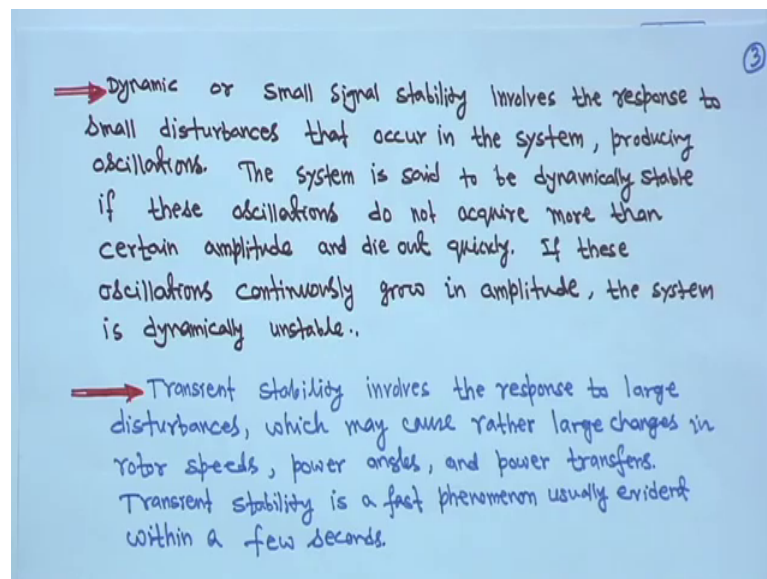 ③
Dynamic or small signal stability involves the response to
small disturbances that occur in the system, producing
oscillations. The system is said to be dynamically stable
if these oscillations do not acquire more than
certain amplitude and die out quickly. If these
oscillations continuously grow in amplitude, the system
is dynamically unstable..
Transient stability involves the response to large
disturbances, which may cause rather large changes in
rotor speeds, power angles, and power transfers.
Transient stability is a fast phenomenon usually evident
within a few seconds.